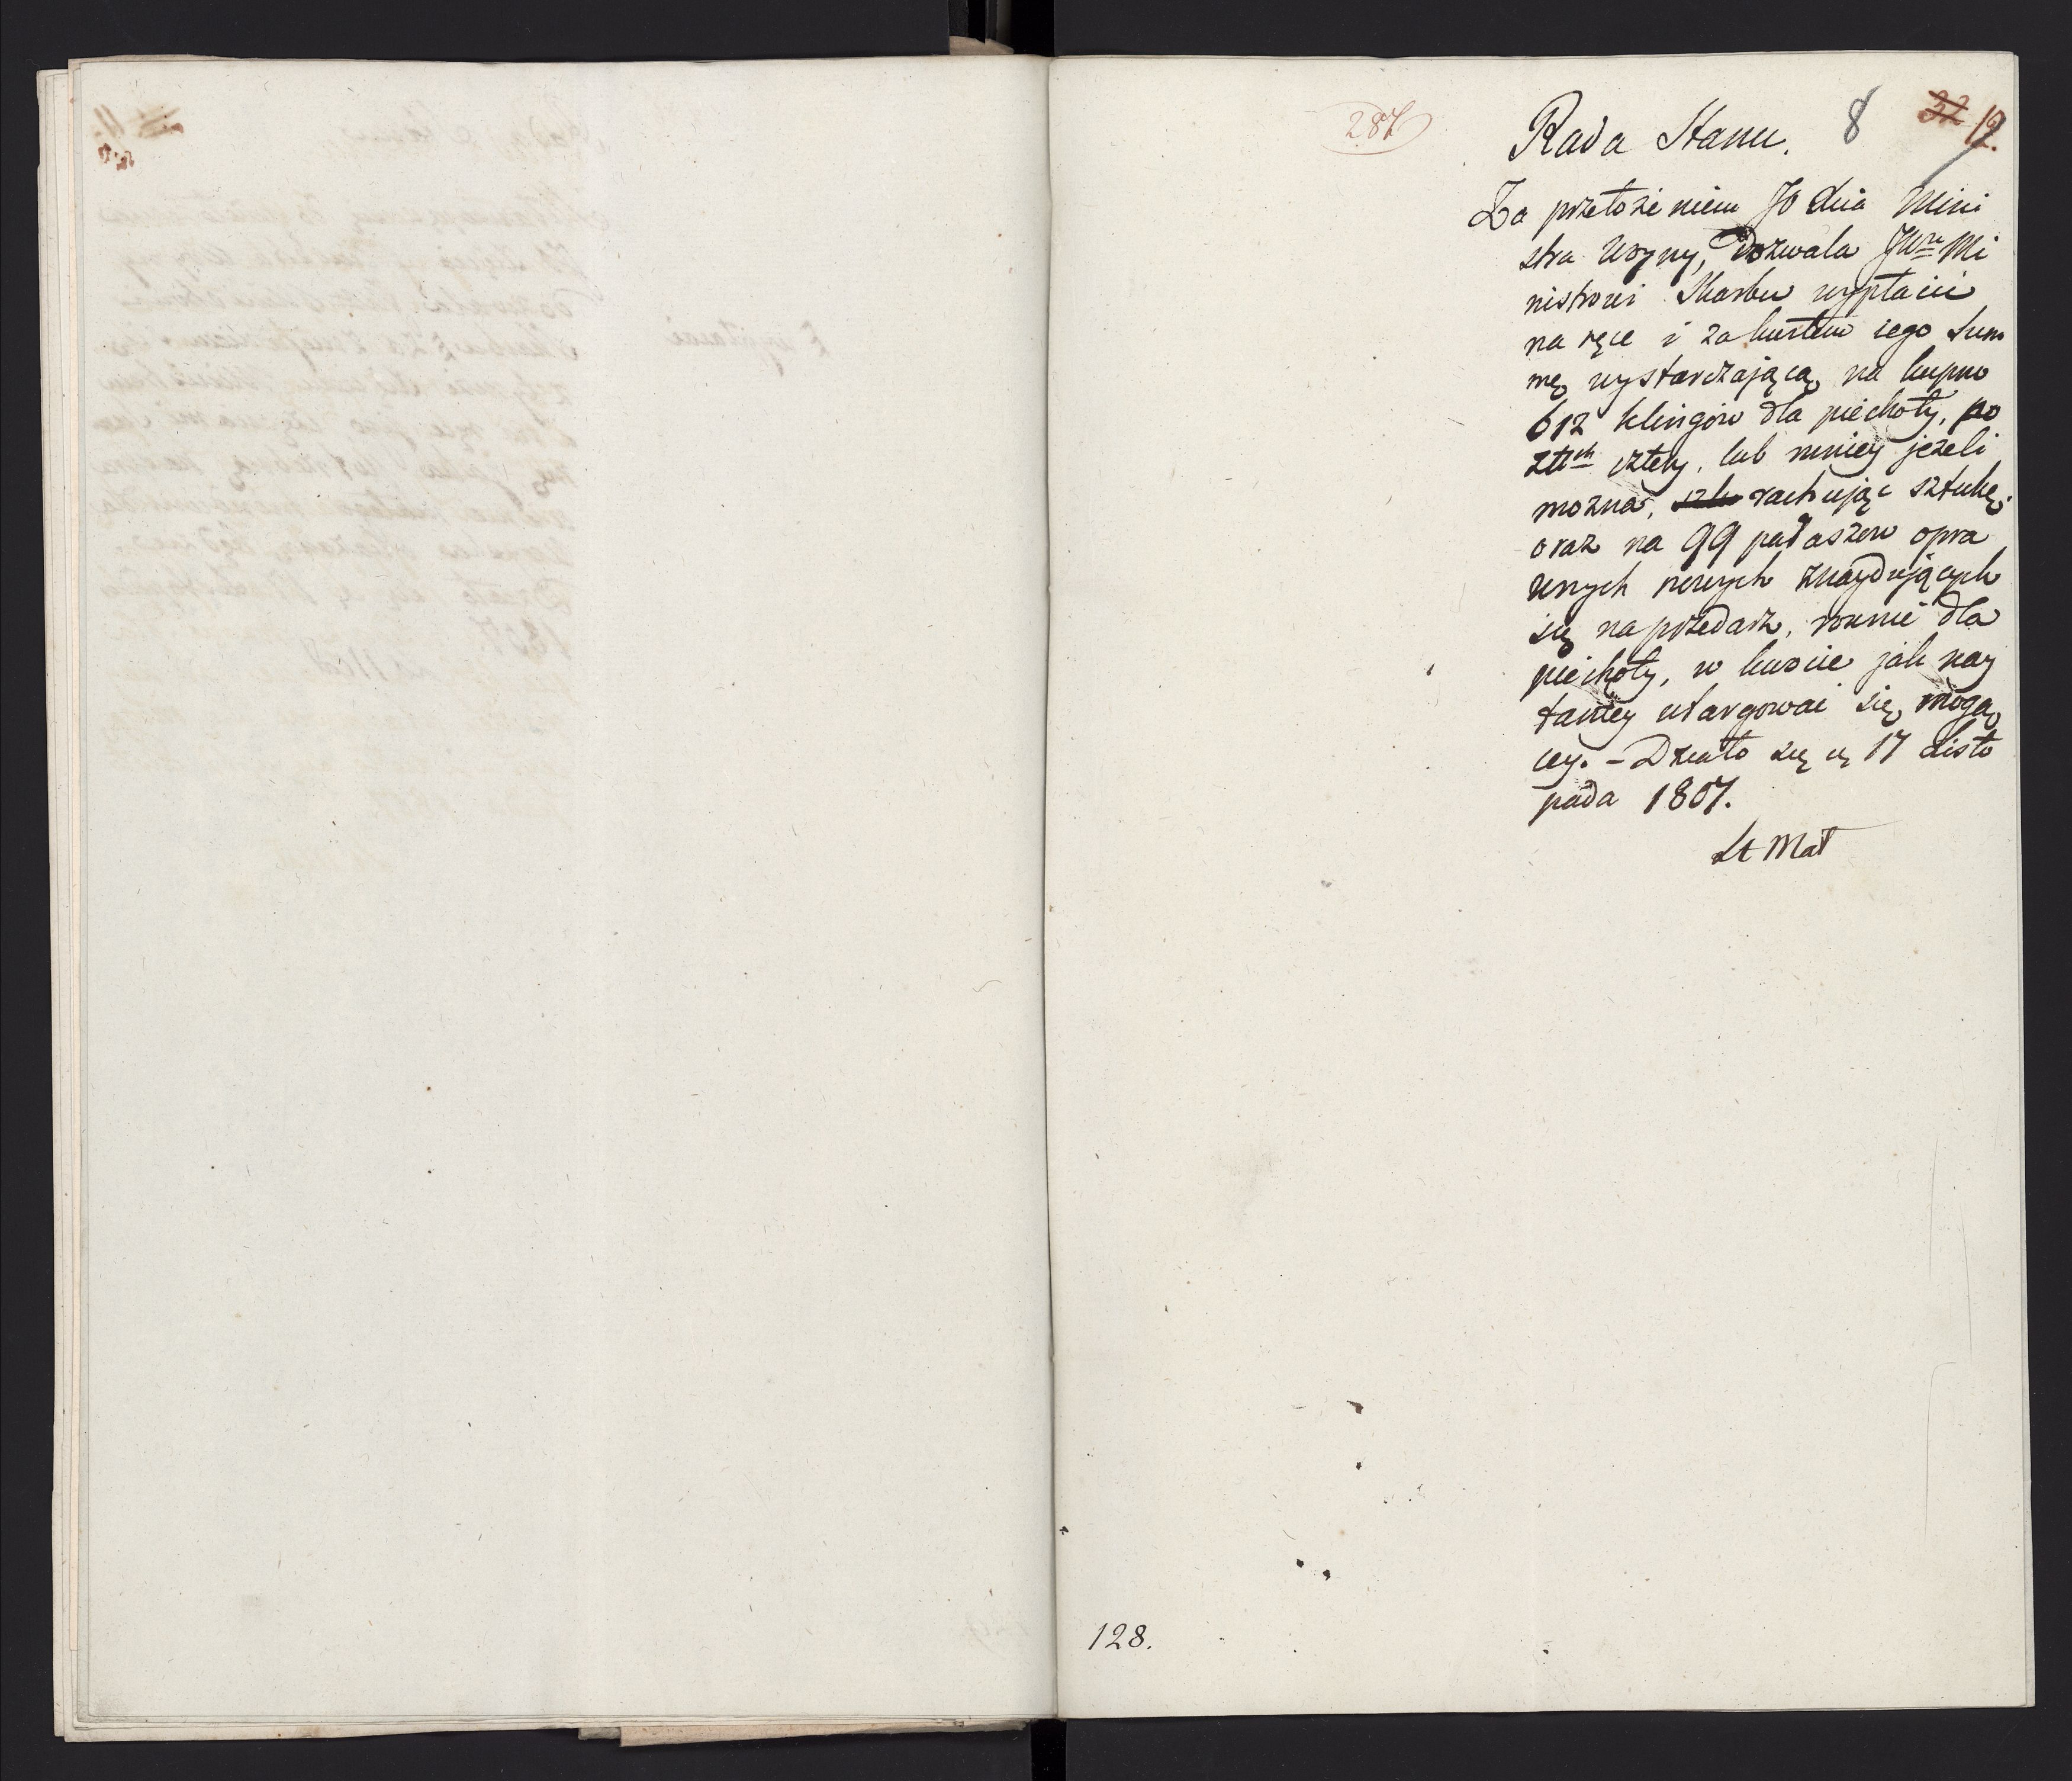 287
Rada Stanu. 8 32 12.
Za przełożeniem JO Xcia Mini
stra Woyny, Dozwala JWmu Mi
nistrowi Skarbu wypłacić
na ręce i za kwitem iego Sum
mę wystarczającą na kupno
612 klingów dla piechoty, po
złtch cztery, lub mniey jeżeli
można, rachując sztukę,
oraz na 99 pałaszow opra
wnych nowych znaydujących
się na przedarz, rownie dla
piechoty, w kwocie jak nay
taniey utargować się mogą
cey. - Działo się 17 Listo
pada 1807.
St Mał
128.